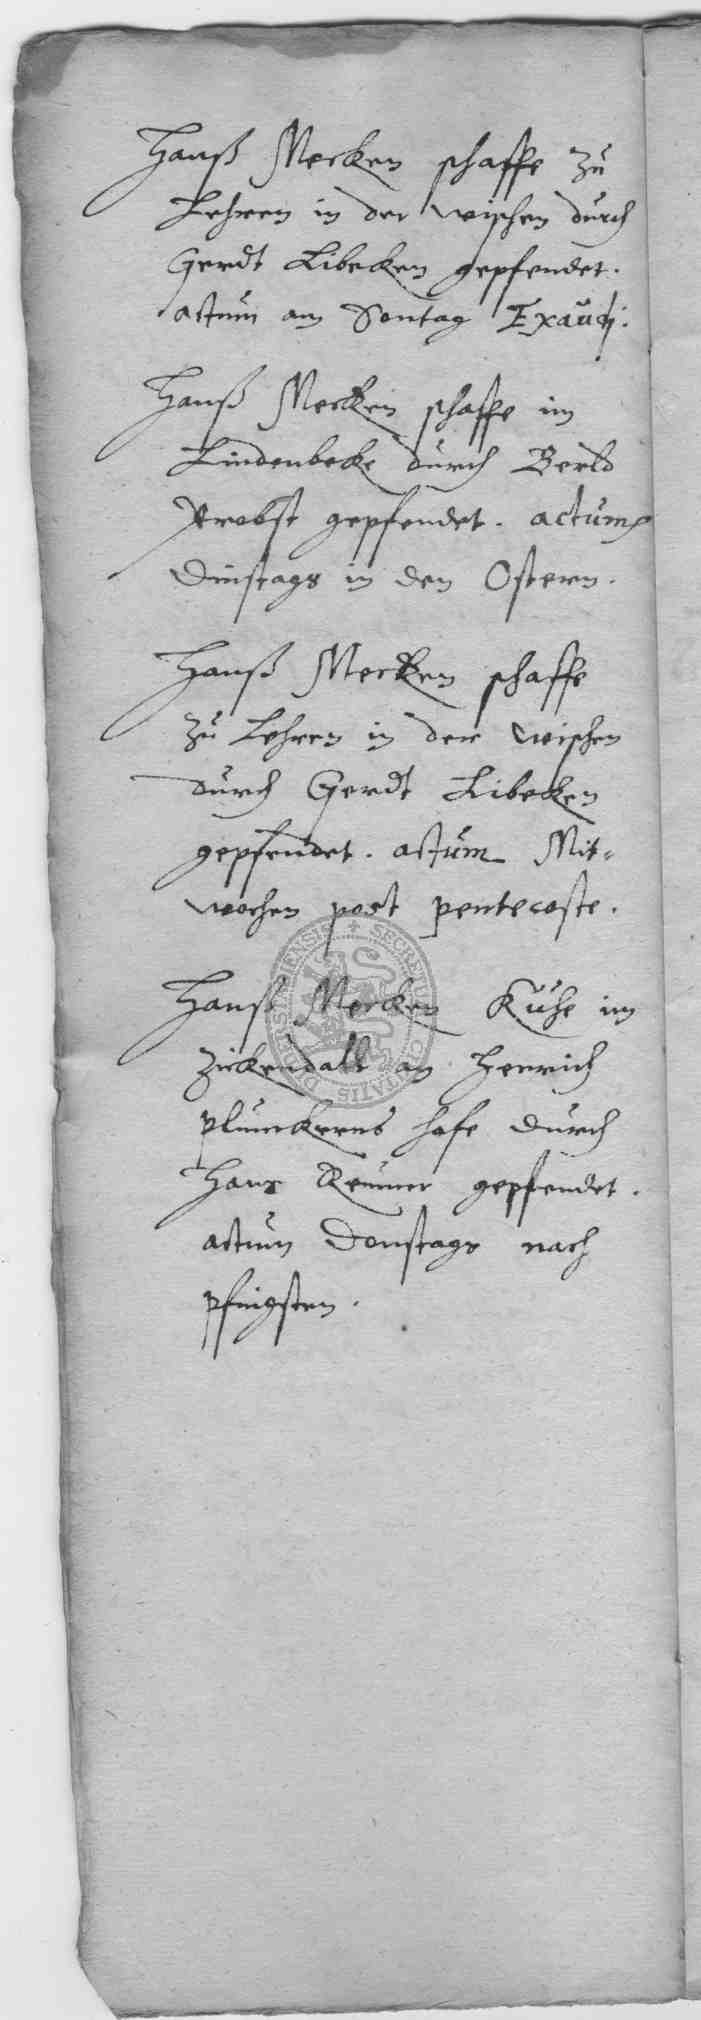 Hanß Mecken schaffe zu
Lehren in der wischen durch
Gerdt Libecken gepfendet.
actum am Sontag Exaudj.
Hanß Mecken schaffe im
Lindenbeke durch Berld
Probst gepfendet. actum
Dinstags in den Ostern.
Hanß Mecken schaffe
zu Lehren in der wischen
durch Gerdt Libecken
gepfendet. actum Mit=
wochen post pentecoste.
Hanß Mecken Kuhe im
Zickendall an Henrich
plunckrens hofe durch
Hans gepfendet.
actum Donstags nach
pfingsten.
SECRETUM CIVITATIS